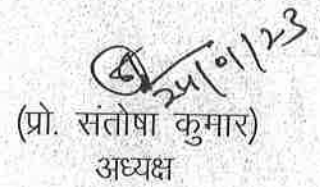 24/01/23
(प्रो. संतोषा कुमार)
अध्यक्ष